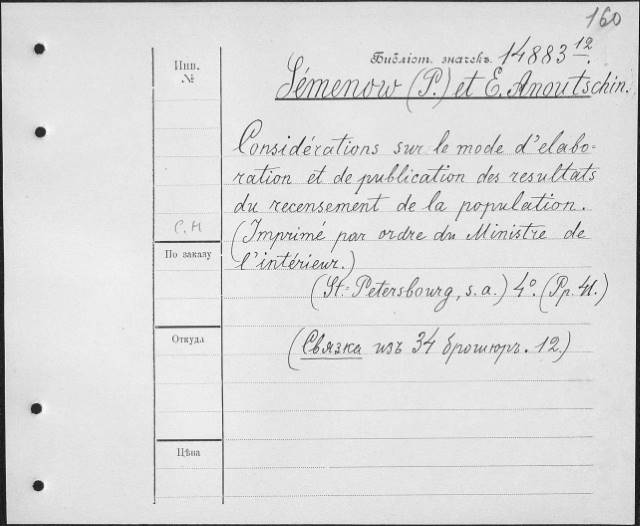 160
Инв.
№
Библіот. значекъ. 14883 12.
Sémenow (P.) et E. Anoutschin.
Considérations sur le mode d'elabo-
ration et de publication des resultats
du recensement de la population.
С. Н
(Imprimé par ordre du Ministre de
l'intérieur.)
По заказу
(St.=Petersbourg, s. a.) 4º. (Pp. 41.)
Откуда
(Связка изъ 34 брошюръ. 12.)
Цѣна